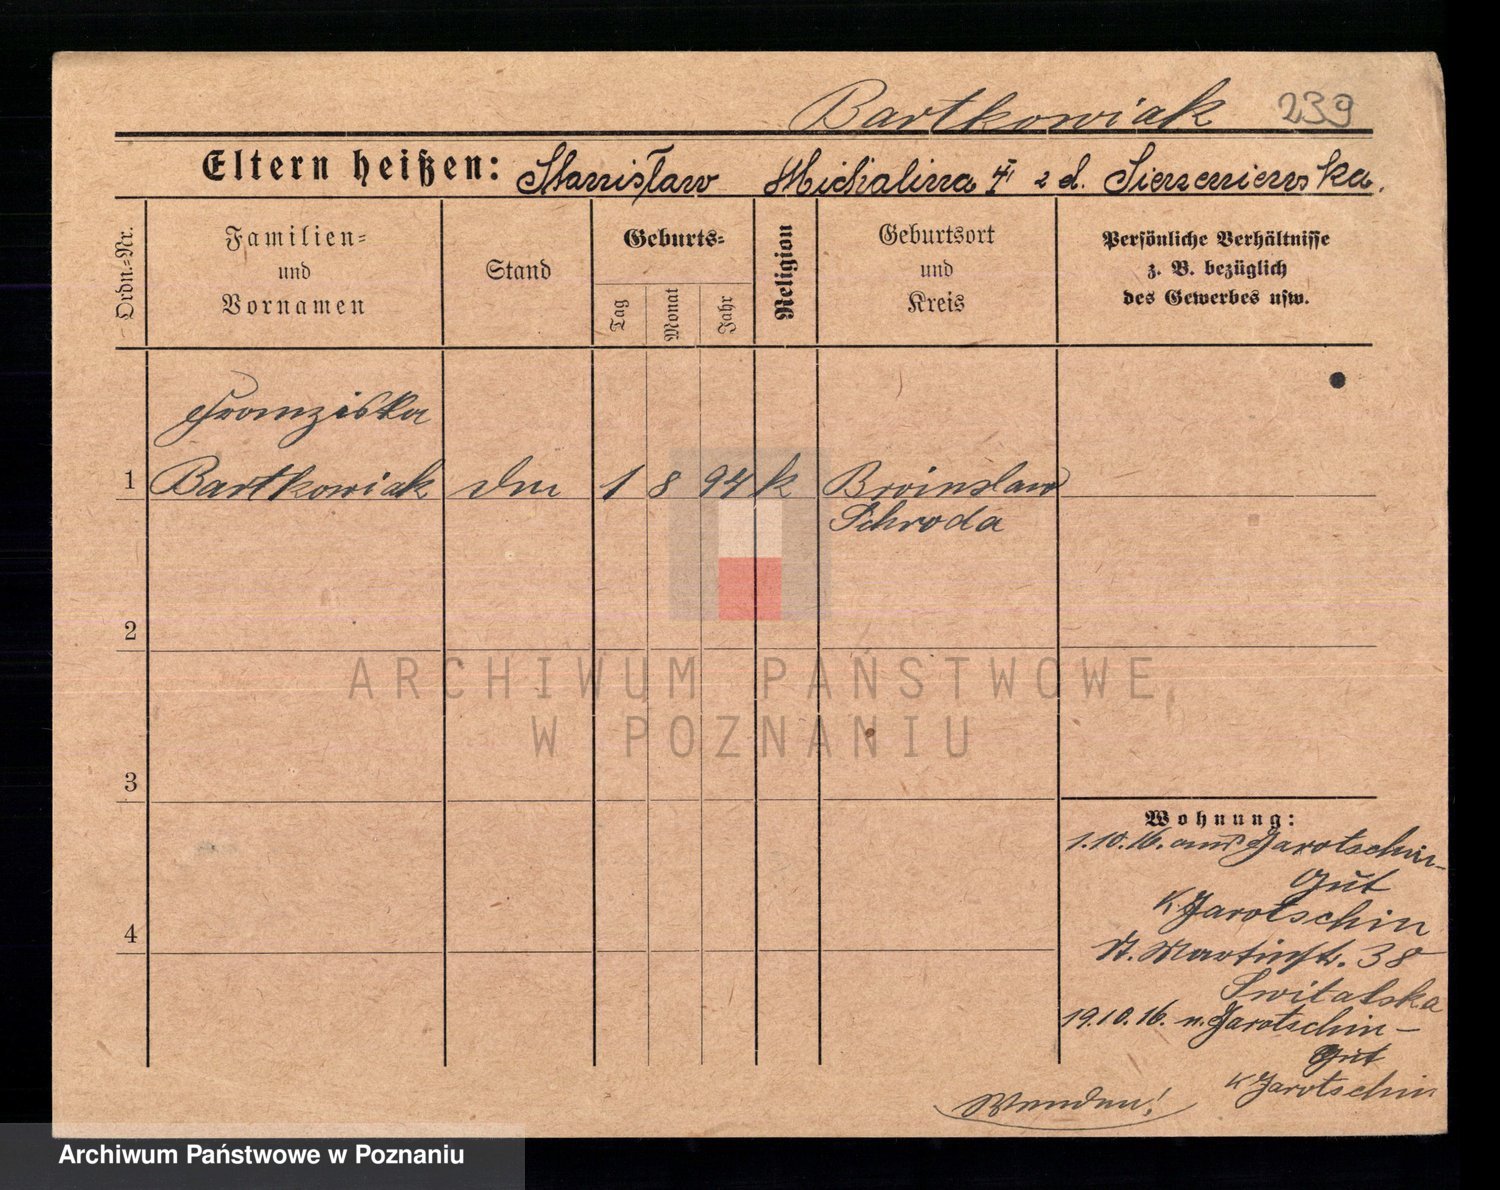 Bartkowiak 239
Eltern heißen: Stanisław Michalina
Ordn.-Nr.
Familien-
und
Vornamen
Stand
Geburts-
Tag
Monat
Jahr
Religion
Geburtsort
und
Kreis
Persönliche Verhältnisse
z. B. bezüglich
des Gewerbes usw.
Franziska
1 Bartkowiak 1 8 94 k
Schroda
2
ARCHIWUM PAŃSTWOWE
W POZNANIU
3
4
Wohnung:
1.10.16. aus Jarotschin-
Gut
K Jarotschin
St. Martinstr. 38
Switalska
19.10.16. n. Jarotschin-
Gut
K Jarotschin
Wenden!
Archiwum Państwowe w Poznaniu